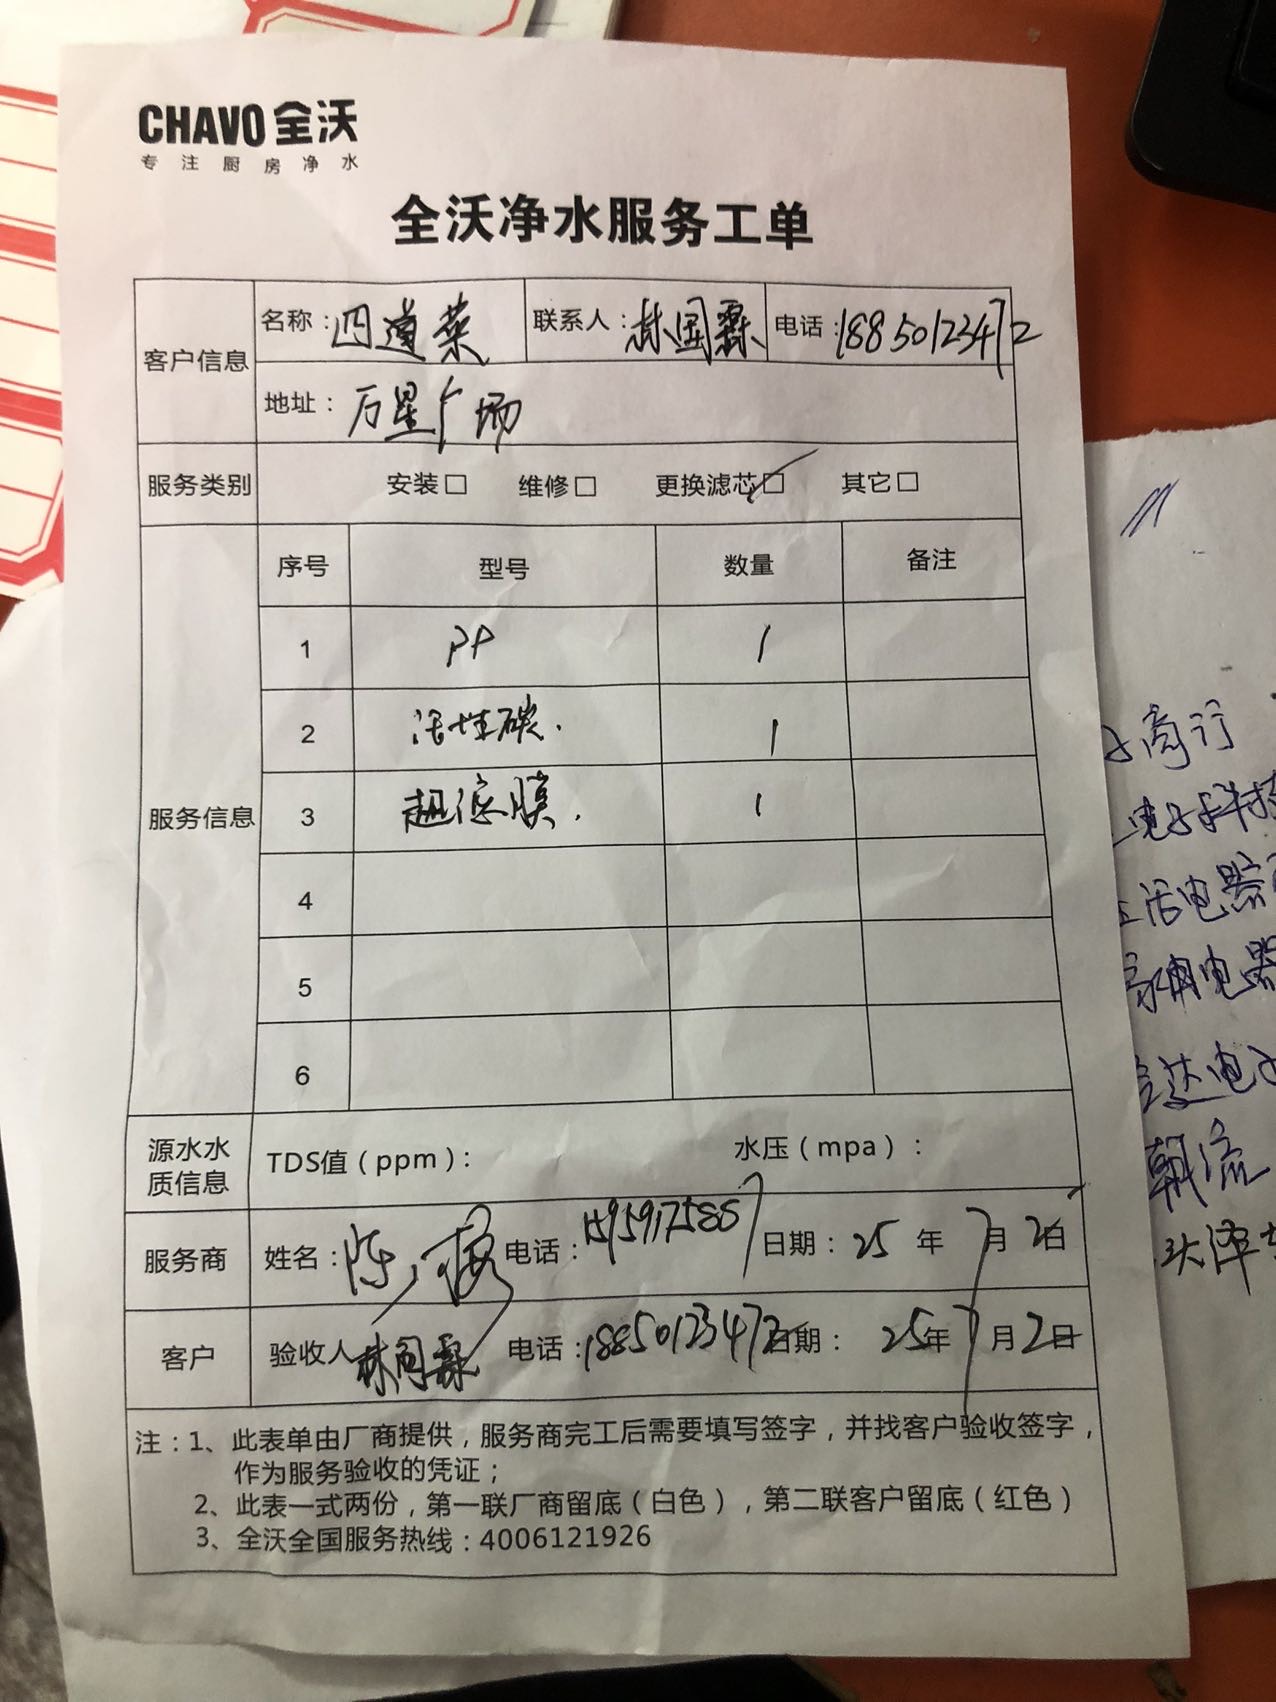 CHAVO 全沃
专注厨房净水
全沃净水服务工单
客户信息 名称：四道菜 联系人：林国霖 电话：18850123472
地址：万星广场
服务类别 安装□ 维修□ 更换滤芯☑ 其它□
服务信息 序号 型号 数量 备注
1 PP 1
2 活性碳. 1
3 超滤膜. 1
4
5
6
源水水质信息 TDS值（ppm）： 水压（mpa）：
服务商 姓名：陈 电话：15959175867 日期：25年7月2日
客户 验收人 林国霖 电话：18850123472 日期：25年7月2日
注：1、此表单由厂商提供，服务商完工后需要填写签字，并找客户验收签字，
作为服务验收的凭证；
2、此表一式两份，第一联厂商留底（白色），第二联客户留底（红色）
3、全沃全国服务热线：4006121926
商行
电子科技
生活电器
电器
信达电子
朝流